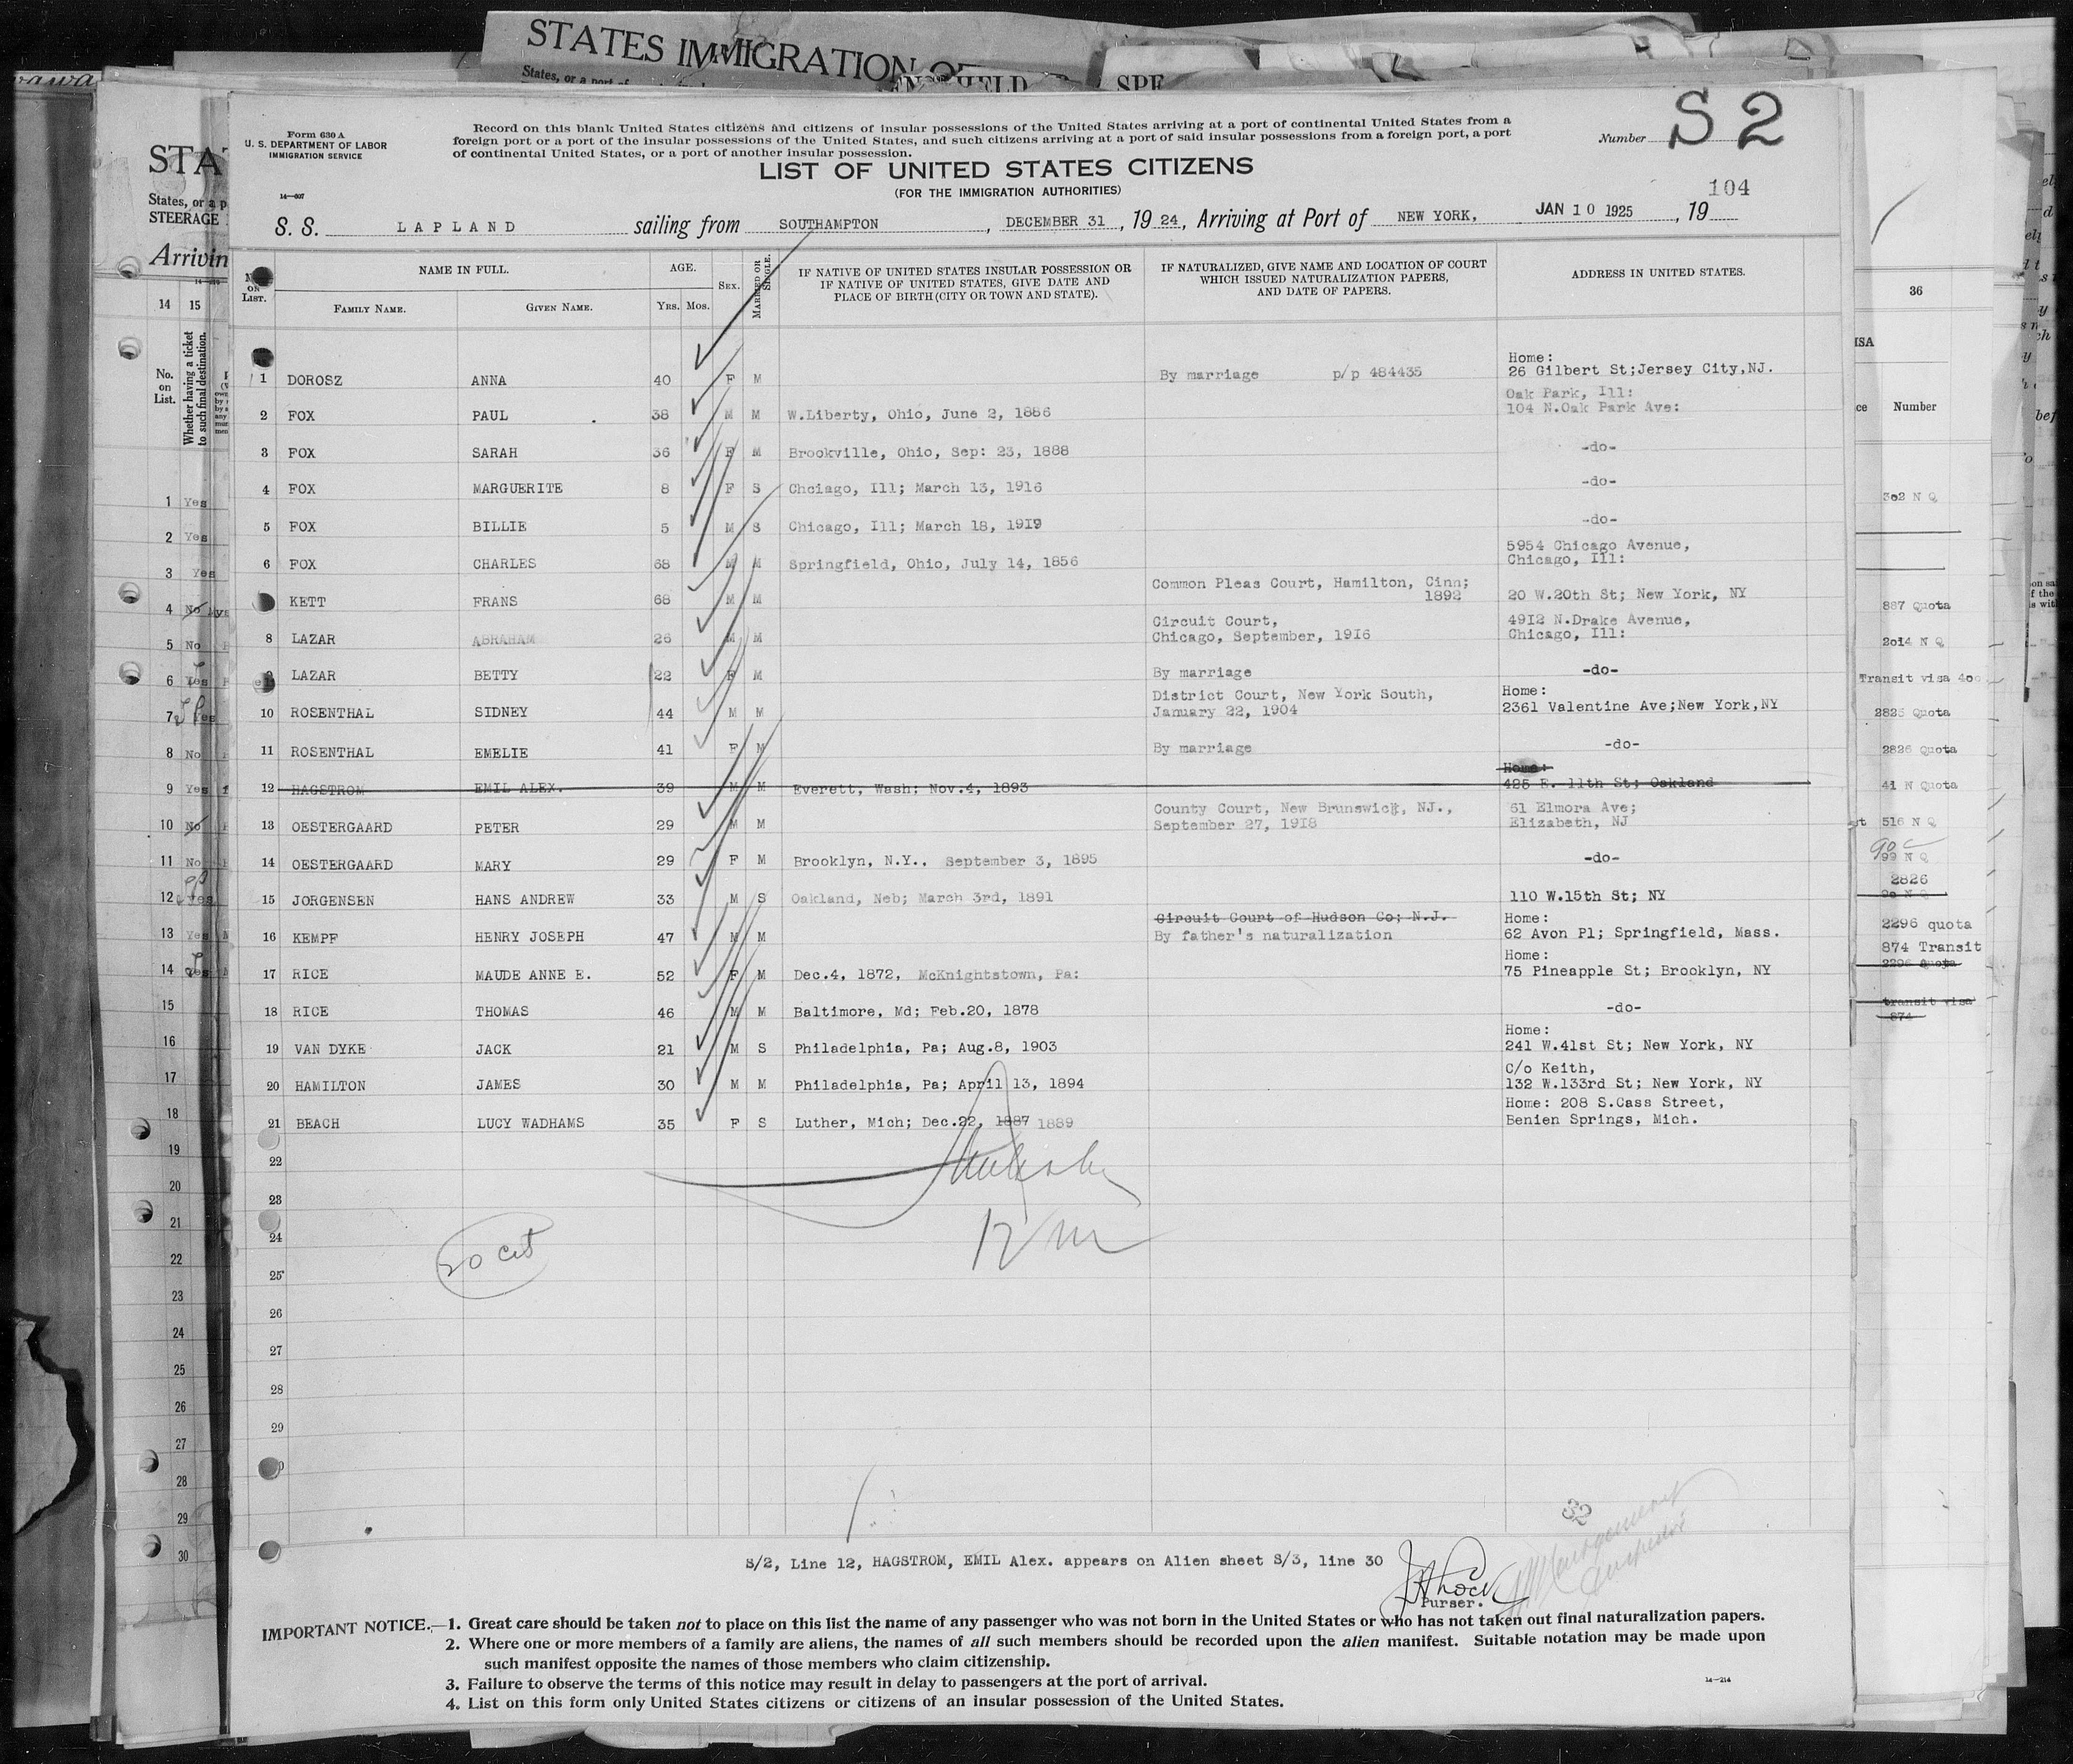 STATES IMMIGRATION OF
States, or a port of
SPE
STA
States, or a p
STEERAGE
Arrivin
14 15
No. on List.
Whether having a ticket to such final destination.
1 Yes
2 Yes
3 Yes
4 No
5 No
6 Yes
7 Yes
8 No
9 Yes
10 No
11 No
12 Yes
13 Yes
14 Yes
15
16
17
18
19
20
21
22
23
24
25
26
27
28
29
30
Form 630 A
U. S. DEPARTMENT OF LABOR
IMMIGRATION SERVICE
14—807
Record on this blank United States citizens and citizens of insular possessions of the United States arriving at a port of continental United States from a
foreign port or a port of the insular possessions of the United States, and such citizens arriving at a port of said insular possessions from a foreign port, a port
of continental United States, or a port of another insular possession.
Number S 2
LIST OF UNITED STATES CITIZENS
(FOR THE IMMIGRATION AUTHORITIES)
104
S. S. LAPLAND sailing from SOUTHAMPTON, DECEMBER 31, 19 24, Arriving at Port of NEW YORK, JAN 10 1925, 19
No. ON LIST.
NAME IN FULL.
FAMILY NAME. GIVEN NAME.
AGE.
YRS. MOS.
SEX.
MARRIED OR SINGLE.
IF NATIVE OF UNITED STATES INSULAR POSSESSION OR
IF NATIVE OF UNITED STATES, GIVE DATE AND
PLACE OF BIRTH (CITY OR TOWN AND STATE).
IF NATURALIZED, GIVE NAME AND LOCATION OF COURT
WHICH ISSUED NATURALIZATION PAPERS,
AND DATE OF PAPERS.
ADDRESS IN UNITED STATES.
Home:
1 DOROSZ ANNA 40 F M By marriage p/p 484435 26 Gilbert St;Jersey City,NJ.
Oak Park, Ill:
2 FOX PAUL 38 M M W.Liberty, Ohio, June 2, 1886 104 N.Oak Park Ave:
3 FOX SARAH 36 F M Brookville, Ohio, Sep: 23, 1888 -do-
4 FOX MARGUERITE 8 F S Chciago, Ill; March 13, 1916 -do-
5 FOX BILLIE 5 M S Chicago, Ill; March 18, 1919 -do-
5954 Chicago Avenue,
6 FOX CHARLES 68 M M Springfield, Ohio, July 14, 1856 Chicago, Ill:
Common Pleas Court, Hamilton, Cinn;
KETT FRANS 68 M M 1892 20 W.20th St; New York, NY
Circuit Court, 4912 N.Drake Avenue,
8 LAZAR ABRAHAM 26 M M Chicago, September, 1916 Chicago, Ill:
9 LAZAR BETTY 22 F M By marriage -do-
District Court, New York South, Home:
10 ROSENTHAL SIDNEY 44 M M January 22, 1904 2361 Valentine Ave;New York,NY
11 ROSENTHAL EMELIE 41 F M By marriage -do-
Home:
12 HAGSTROM EMIL ALEX. 39 M M Everett, Wash; Nov.4, 1893 425 E. 11th St; Oakland
County Court, New Brunswick, NJ., 61 Elmora Ave;
13 OESTERGAARD PETER 29 M M September 27, 1918 Elizabeth, NJ
14 OESTERGAARD MARY 29 F M Brooklyn, N.Y., September 3, 1895 -do-
15 JORGENSEN HANS ANDREW 33 M S Oakland, Neb; March 3rd, 1891 110 W.15th St; NY
Circuit Court of Hudson Co; N.J. Home:
16 KEMPF HENRY JOSEPH 47 M M By father's naturalization 62 Avon Pl; Springfield, Mass.
Home:
17 RICE MAUDE ANNE E. 52 F M Dec.4, 1872, McKnightstown, Pa: 75 Pineapple St; Brooklyn, NY
18 RICE THOMAS 46 M M Baltimore, Md; Feb.20, 1878 -do-
Home:
19 VAN DYKE JACK 21 M S Philadelphia, Pa; Aug.8, 1903 241 W.41st St; New York, NY
C/o Keith,
20 HAMILTON JAMES 30 M M Philadelphia, Pa; April 13, 1894 132 W.133rd St; New York, NY
Home: 208 S.Cass Street,
21 BEACH LUCY WADHAMS 35 F S Luther, Mich; Dec.22, 1887 1889 Benien Springs, Mich.
22
23
24
20 cit
25
26
27
28
29
32
S/2, Line 12, HAGSTROM, EMIL Alex. appears on Alien sheet S/3, line 30
Purser.
Montgomery
Inspector
IMPORTANT NOTICE.—1. Great care should be taken not to place on this list the name of any passenger who was not born in the United States or who has not taken out final naturalization papers.
2. Where one or more members of a family are aliens, the names of all such members should be recorded upon the alien manifest. Suitable notation may be made upon
such manifest opposite the names of those members who claim citizenship.
3. Failure to observe the terms of this notice may result in delay to passengers at the port of arrival.
4. List on this form only United States citizens or citizens of an insular possession of the United States.
14—214
36
ISA
Number
302 N Q
887 Quota
2014 N Q
Transit visa 400
2825 Quota
2826 Quota
41 N Quota
516 N Q
99 N Q
2826
2296 quota
874 Transit
2296 Quota
transit visa
874